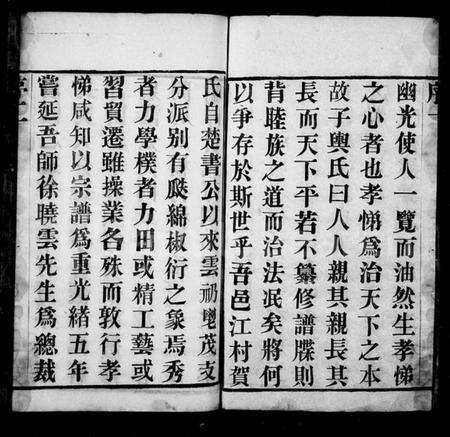 幽光使人一覽而油然生孝悌
之心者也孝悌為治天下之本
故子輿氏曰人人親其親長其
長而天下平若不纂修譜牒則
背睦族之道而治法泯矣將何
以爭存於斯世乎吾邑江村賀
氏自楚書公以來雲礽鬯茂支
分派别有瓞綿椒衍之象焉秀
者力學樸者力田或精工藝或
習貿遷雖操業各殊而敦行孝
悌咸知以宗譜為重光緒五年
嘗延吾師徐曉雲先生為總裁
序二